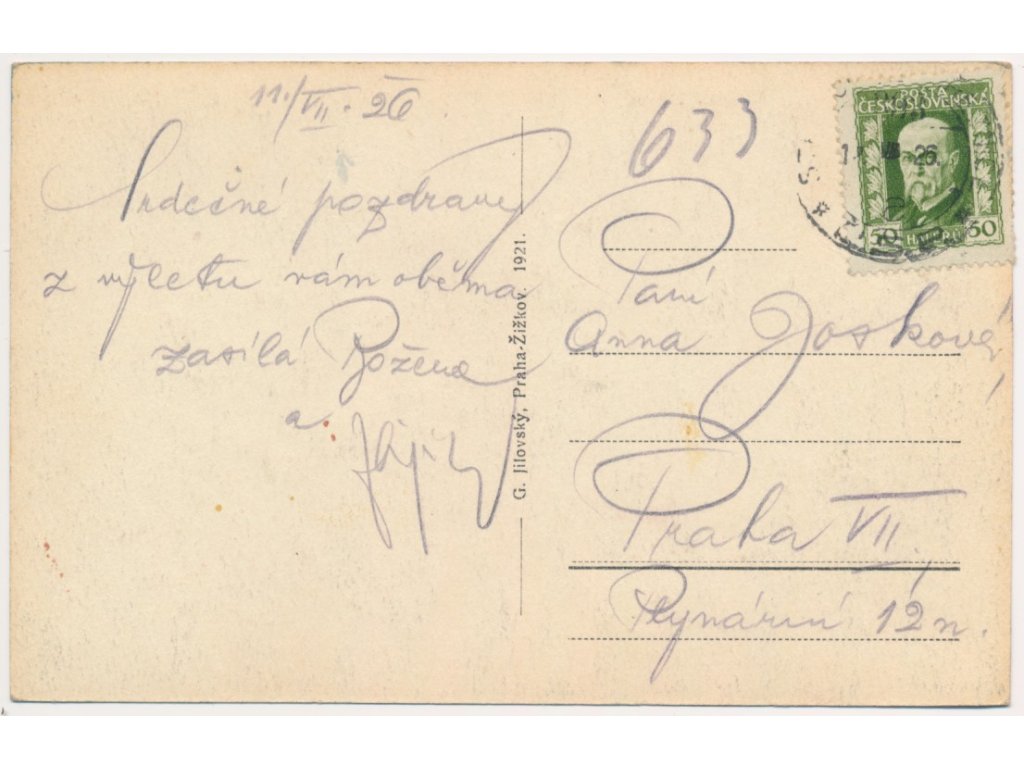 11./VII. 26
Srdečné pozdravy
z výletu vám oběma
zasílá Božena
a
G. Jílovský, Praha-Žižkov. 1921.
633
POŠTA
ČESKOSLOVENSKÁ
26
50 H 50
Paní
Anna Josková
Praha VII.
Plynární 12n.